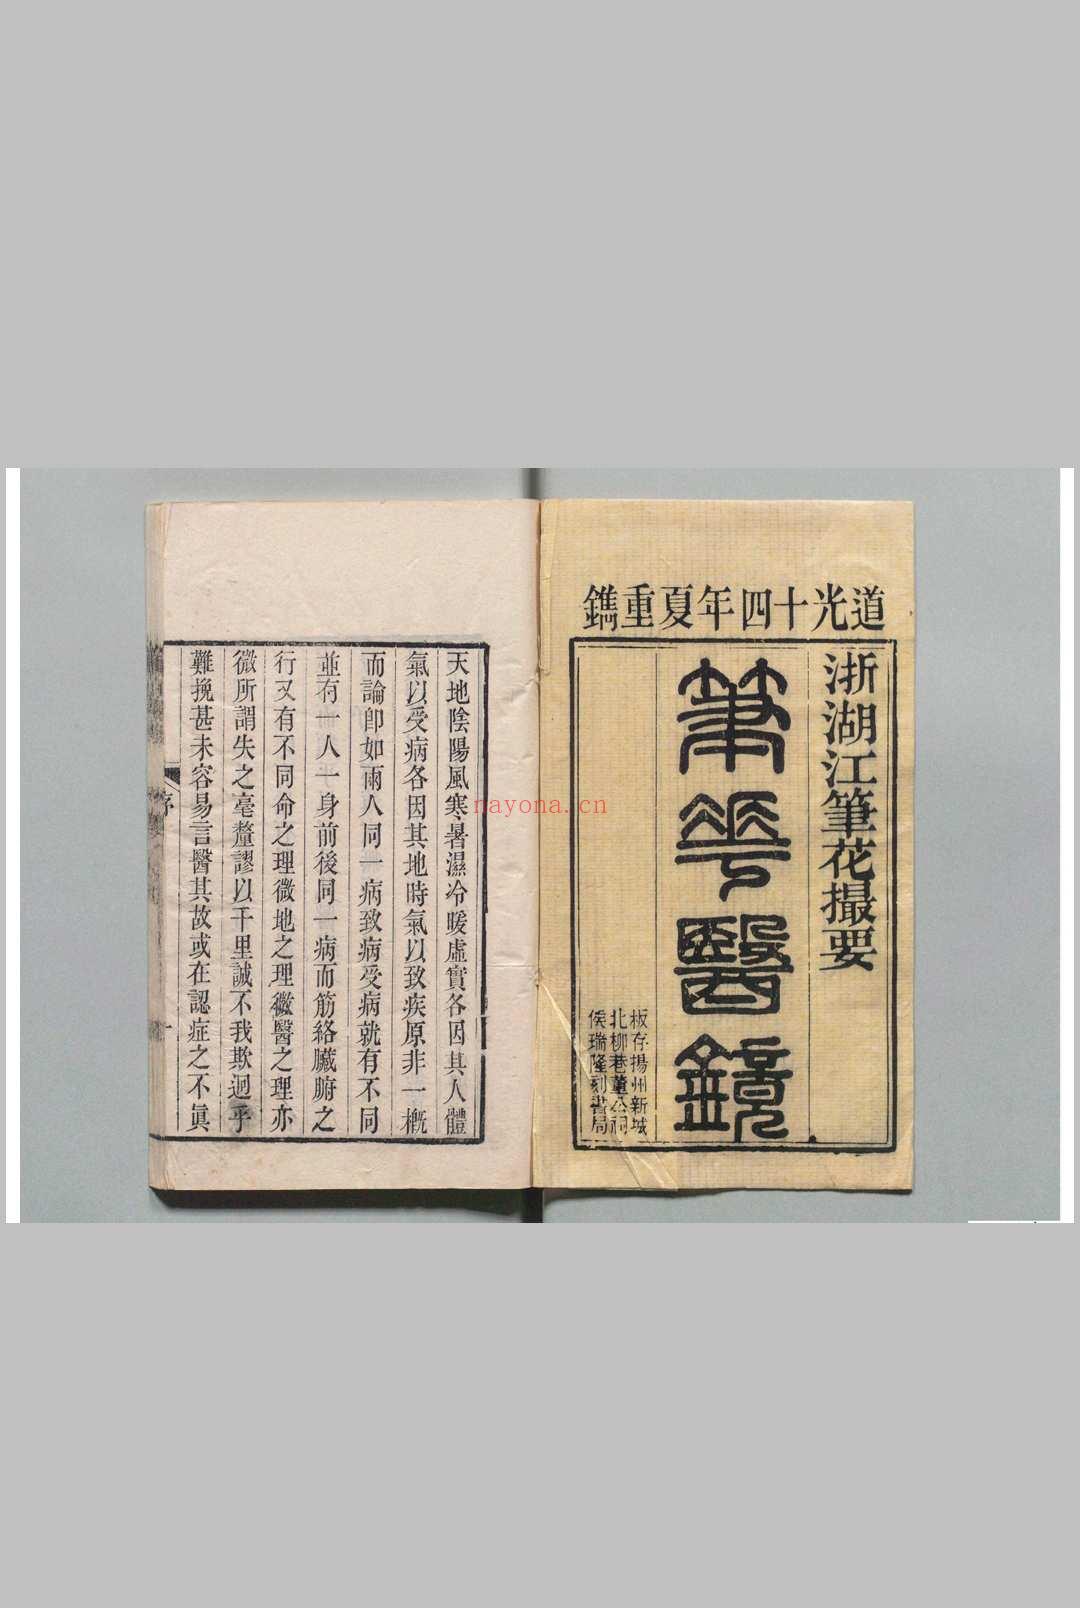 道光十四年夏重鐫
浙湖江筆花撮要
筆花醫鏡
板存揚州新城
北柳巷董公祠
侯瑞隆刻書局
天地陰陽風寒暑濕冷暖虛實各因其人體
氣以受病各因其地時氣以致疾原非一概
而論卽如兩人同一病致病受病就有不同
並有一人一身前後同一病而筋絡臟腑之
行又有不同命之理微地之理微醫之理亦
微所謂失之毫釐謬以千里誠不我欺迴乎
難挽甚未容易言醫其故或在認症之不眞
序
一
nayona.cn